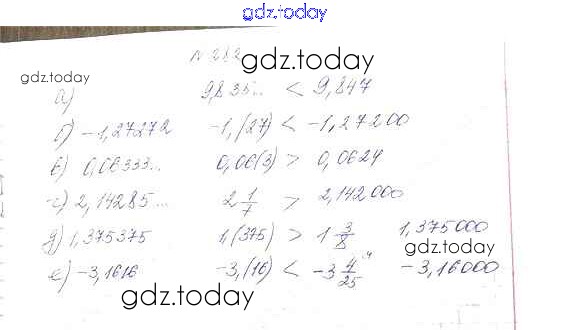 gdz.today
N 282
gdz.today
gdz.today
а) 9,835.. < 9,847
б) -1,27272 -1,(27) < -1,27200
в) 0,06333... 0,06(3) > 0,0624
г) 2,14285... 2 1/7 > 2,142000
д) 1,375375 1,(375) > 1 3/8 1,375000
gdz.today
е) -3,1616 -3,(16) < -3 4/25 -3,16000
gdz.today